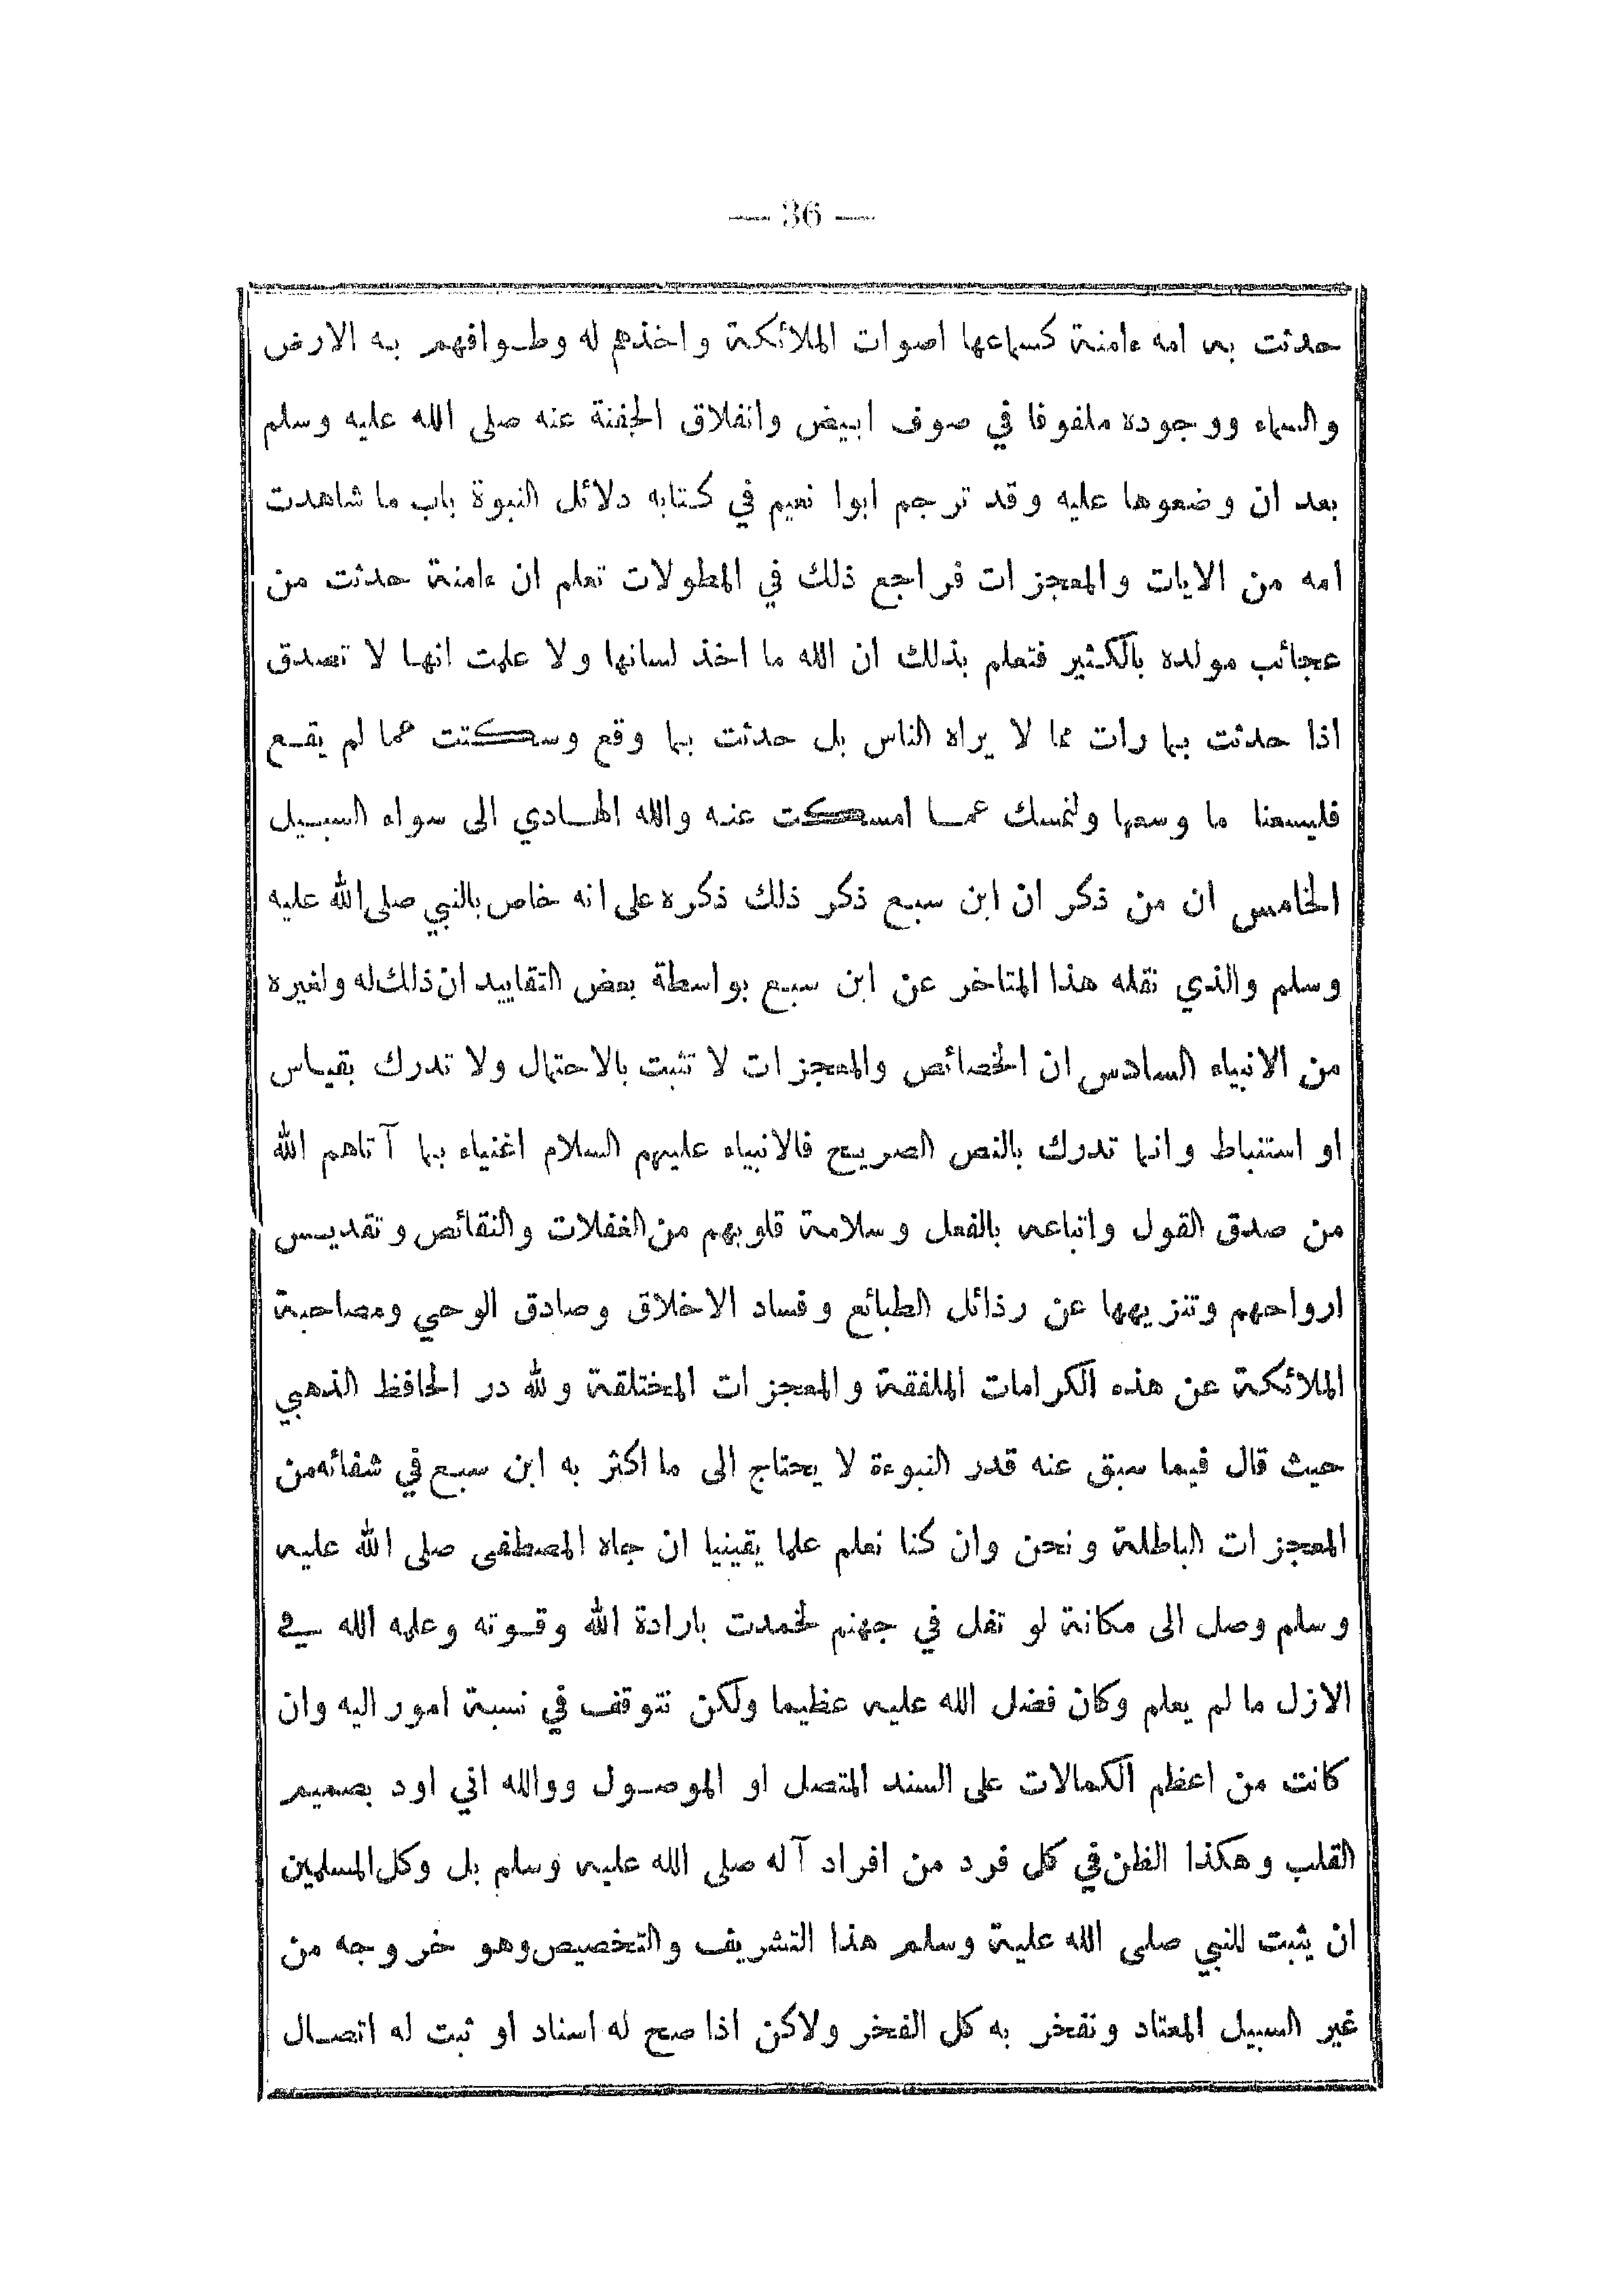 — 36 —
حدثت به امه ءامنة كسماعها اصوات الملائكة واخذهم له وطوافهم به الارض
والسماء ووجوده ملفوفا في صوف ابيض وانفلاق الجفنة عنه صلى الله عليه وسلم
بعد ان وضعوها عليه وقد ترجم ابوا نعيم في كتابه دلائل النبوة باب ما شاهدت
امه من الايات والمعجزات فراجع ذلك في المطولات تعلم ان ءامنة حدثت من
عجائب مولده بالكثير فتعلم بذلك ان الله ما اخذ لسانها ولا علمت انها لا تصدق
اذا حدثت بما رات مما لا يراه الناس بل حدثت بما وقع وسكتت عما لم يقع
فليسعنا ما وسعها ولنمسك عما امسكت عنه والله الهادي الى سواء السبيل
الخامس ان من ذكر ان ابن سبع ذكر ذلك ذكره على انه خاص بالنبي صلى الله عليه
وسلم والذي نقله هذا المتاخر عن ابن سبع بواسطة بعض التقاييد ان ذلك له ولغيره
من الانبياء السادس ان الخصائص والمعجزات لا تثبت بالاحتمال ولا تدرك بقياس
او استنباط وانما تدرك بالنص الصريح فالانبياء عليهم السلام اغنياء بما آتاهم الله
من صدق القول واتباعه بالفعل وسلامة قلوبهم من الغفلات والنقائص وتقديس
ارواحهم وتنزيهها عن رذائل الطبائع وفساد الاخلاق وصادق الوحي ومصاحبة
الملائكة عن هذه الكرامات الملفقة والمعجزات المختلقة ولله در الحافظ الذهبي
حيث قال فيما سبق عنه قدر النبوءة لا يحتاج الى ما اكثر به ابن سبع في شفائه من
المعجزات الباطلة ونحن وان كنا نعلم علما يقينيا ان جاه المصطفى صلى الله عليه
وسلم وصل الى مكانة لو تفل في جهنم لخمدت بارادة الله وقوته وعلمه الله في
الازل ما لم يعلم وكان فضل الله عليه عظيما ولكن نتوقف في نسبة امور اليه وان
كانت من اعظم الكمالات على السند المتصل او الموصول ووالله اني اود بصميم
القلب وهكذا الظن في كل فرد من افراد آله صلى الله عليه وسلم بل وكل المسلمين
ان يثبت للنبي صلى الله علية وسلم هذا التشريف والتخصيص وهو خروجه من
غير السبيل المعتاد ونفخر به كل الفخر ولاكن اذا صح له اسناد او ثبت له اتصال